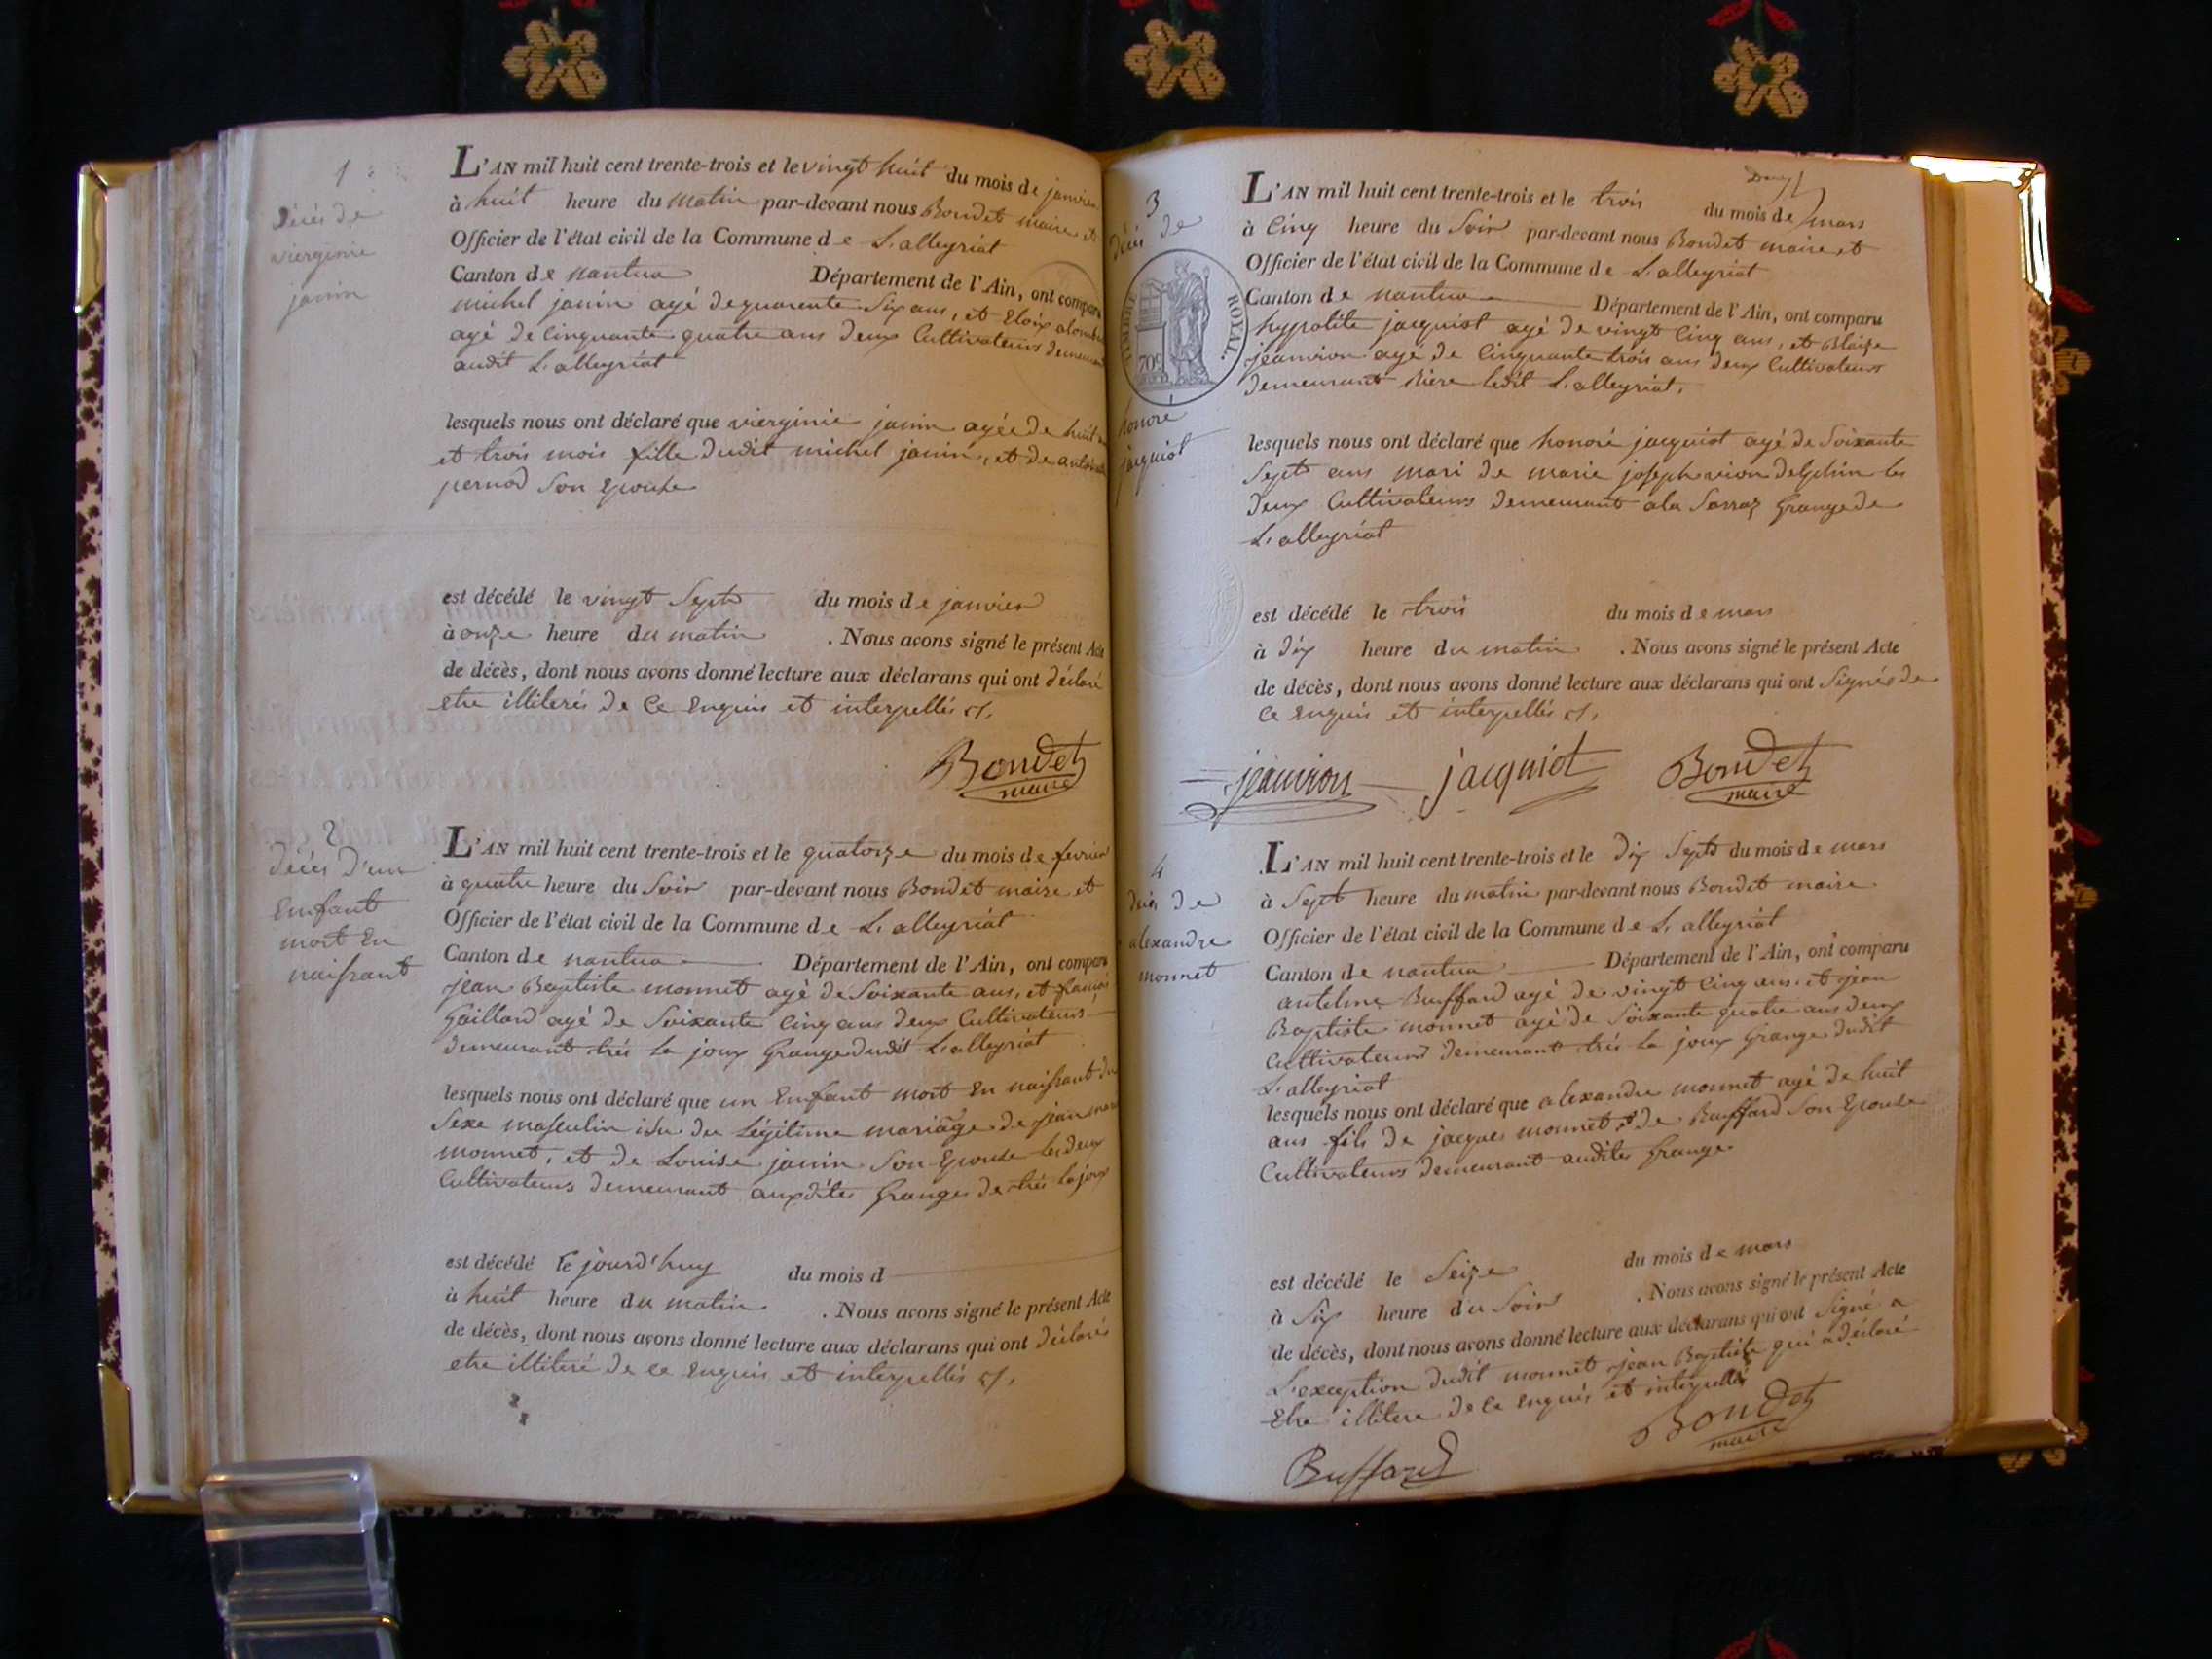 1
Décès de
vierginie
janin
L'AN mil huit cent trente-trois et le vingt huit du mois de janvier
à huit heure du matin par-devant nous Bondet maire et
Officier de l'état civil de la Commune de L'alleyriat
Canton de nantua Département de l'Ain, ont comparu
michel janin agé de quarente Six ans, et Eloix
agé de Cinquante quatre ans deux Cultivateurs demeurant
audit L'alleyriat
lesquels nous ont déclaré que vierginie janin agée de huit
et trois mois fille dudit michel janin, et de
pernod Son Epouse
est décédé le vingt Sept du mois de janvier
à onze heure du matin . Nous avons signé le présent Acte
de décès, dont nous avons donné lecture aux déclarans qui ont déclaré
etre illiterés de Ce Enquis et interpellés
Bondet
maire
2
décès d'un
Enfant
mort En
naissant
L'AN mil huit cent trente-trois et le quatorze du mois de fevrier
à quatre heure du Soir par-devant nous Bondet maire et
Officier de l'état civil de la Commune de L'alleyriat
Canton de nantua Département de l'Ain, ont comparu
jean Baptiste monnet agé de Soixante ans, et françois
Gaillard agé de Soixante Cinq ans deux Cultivateurs
demeurant trés la joux Grange dudit L'alleyriat
lesquels nous ont déclaré que un Enfant mort En naissant du
Sexe masculin isu du Légitime mariage de jean
monnet, et de Louise janin Son Epouse les deux
Cultivateurs demeurant auxdites Granges de trés la joux
est décédé le jourd'huy du mois d
à huit heure du matin . Nous avons signé le présent Acte
de décès, dont nous avons donné lecture aux déclarans qui ont déclarés
etre illiteré de ce Enquis et interpellés
3
décès de
TIMBRE ROYAL.
70c
honoré
jacquiot
L'AN mil huit cent trente-trois et le trois du mois de mars
à Cinq heure du Soir par-devant nous Bondet maire et
Officier de l'état civil de la Commune de L'alleyriat
Canton de nantua Département de l'Ain, ont comparu
hypolite jacquiot agé de vingt Cinq ans, et Blaize
jeanvion agé de Cinquante trois ans deux Cultivateurs
demeurant Rière ledit L'alleyriat.
lesquels nous ont déclaré que honoré jacquiot agé de Soixante
Sept ans mari de marie joseph vion delphin les
deux Cultivateurs demeurant a la Sarraz Grange de
L'alleyriat
est décédé le trois du mois de mars
à dix heure du matin . Nous avons signé le présent Acte
de décès, dont nous avons donné lecture aux déclarans qui ont Signés de
Ce Enquis et interpellés
jeanvion jacquiot Bondet
maire
4
décès de
alexandre
monnet
L'AN mil huit cent trente-trois et le dix Sept du mois de mars
à Sept heure du matin par-devant nous Bondet maire
Officier de l'état civil de la Commune de L'alleyriat
Canton de nantua Département de l'Ain, ont comparu
antelme Buffard agé de vingt Cinq ans et jean
Baptiste monnet agé de Soixante quatre ans deux
Cultivateurs demeurant trés la joux Grange dudit
L'alleyriat
lesquels nous ont déclaré que alexandre monnet agé de huit
ans fils de jacques monnet, et de Buffard Son Epouse
Cultivateurs demeurant audites Grange
est décédé le Seize du mois de mars
à Six heure du Soir . Nous avons signé le présent Acte
de décès, dont nous avons donné lecture aux déclarans qui ont Signé a
L'exception dudit monnet jean Baptiste qui a déclaré
Etre illitere de Ce Enquis et interpellés
Bondet
maire
Buffard